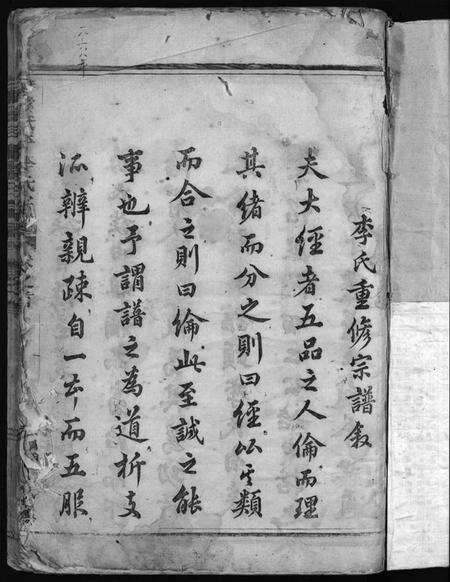 李氏重脩宗譜叙
夫大經者五品之人倫而理
其緒而分之則曰經比其類
而合之則曰綸此至誠之能
事也予謂譜之為道析支
派辨親疎自一本而五服